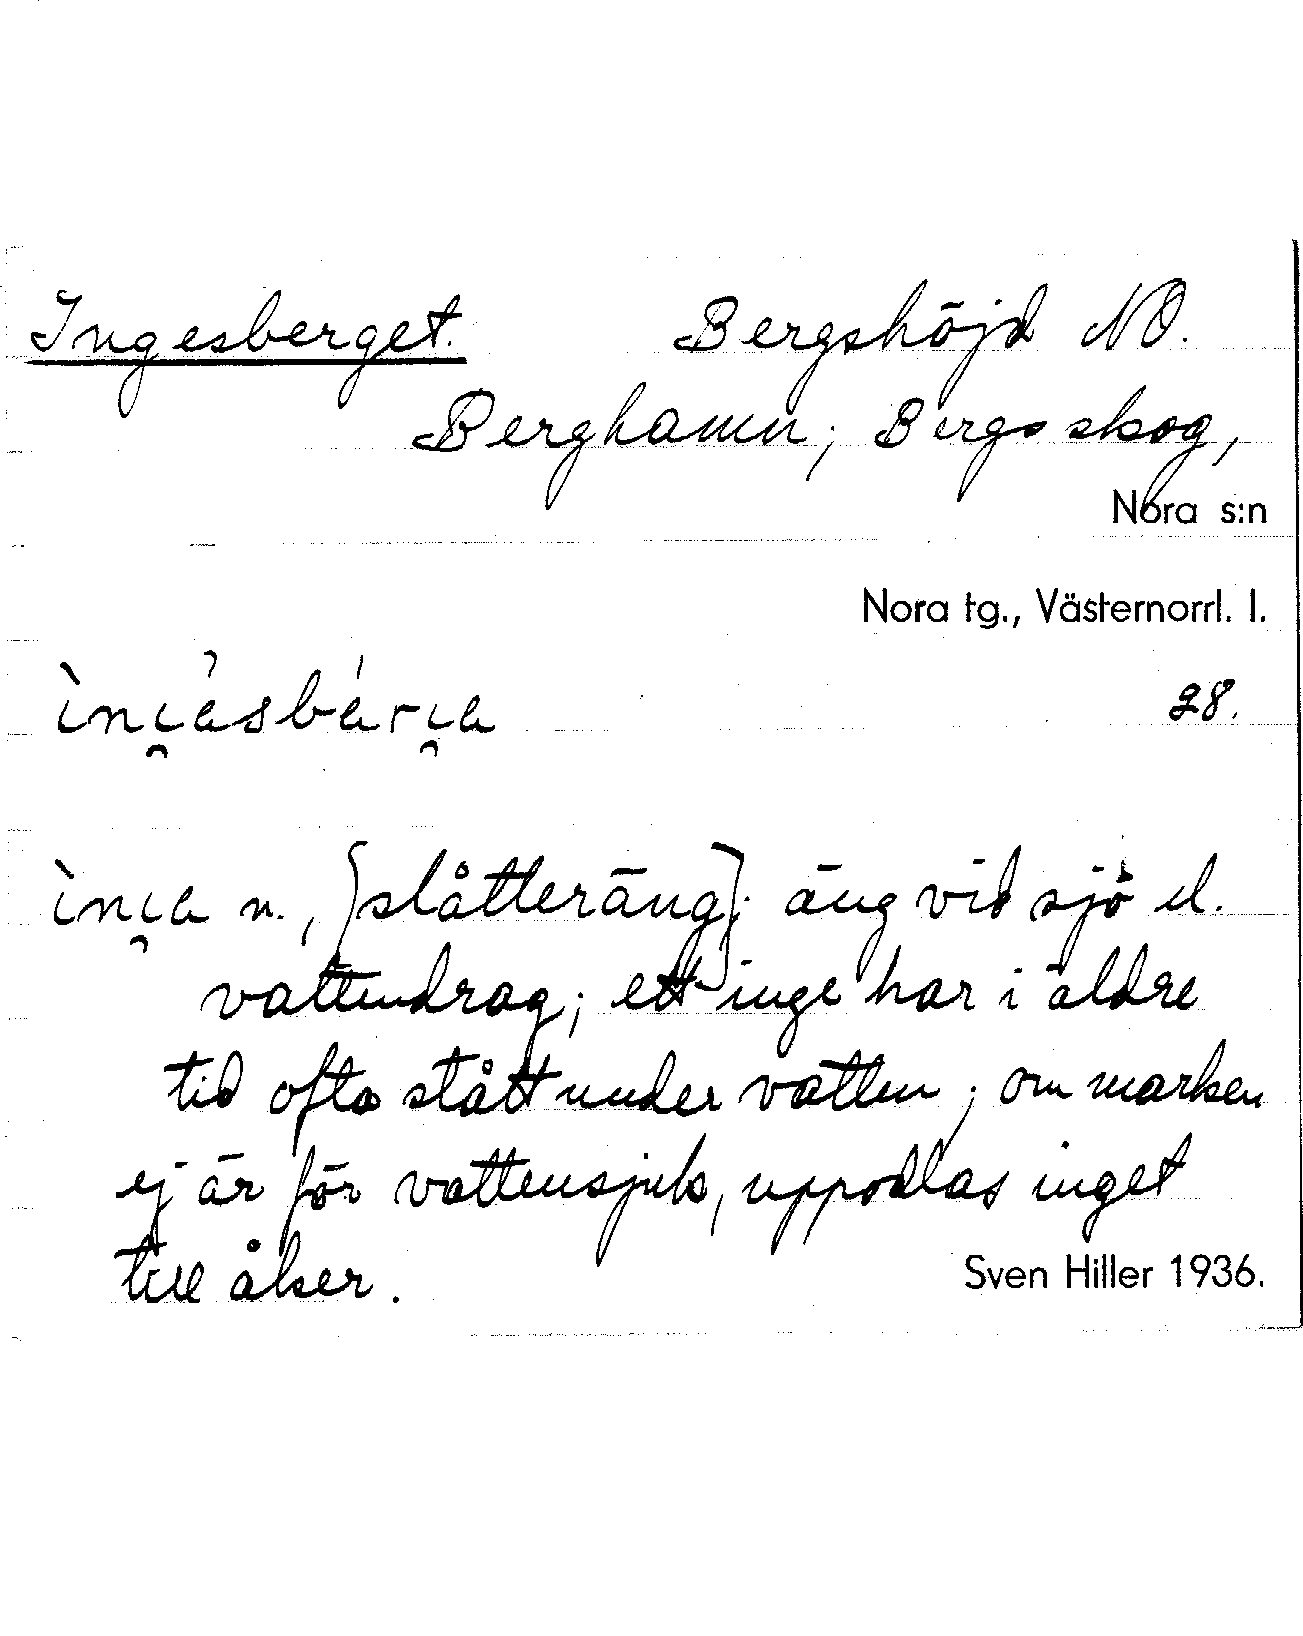 Ingesberget. Bergshöjd NO.
Berghamn; Bergs skog,
Nora s:n
Nora tg., Västernorrl. l.
ìni̯ásbári̯a 28.
ìni̯a n., [slåtteräng]; äng vid sjö el.
vattendrag; ett inge har i äldre
tid ofta stått under vatten; om marken
ej är för vattensjuk, uppodlas inget
till åker.
Sven Hiller 1936.